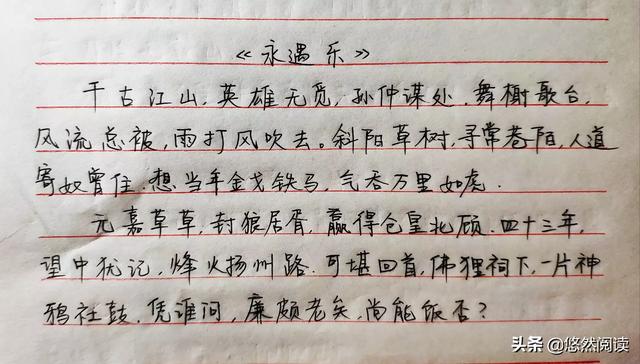 《永遇乐》
千古江山,英雄无觅,孙仲谋处.舞榭歌台,
风流总被,雨打风吹去。斜阳草树,寻常巷陌,人道
寄奴曾住.想当年金戈铁马,气吞万里如虎.
元嘉草草,封狼居胥,赢得仓皇北顾.四十三年,
望中犹记,烽火扬州路.可堪回首,佛狸祠下,一片神
鸦社鼓.凭谁问,廉颇老矣,尚能饭否?
头条 @悠然阅读